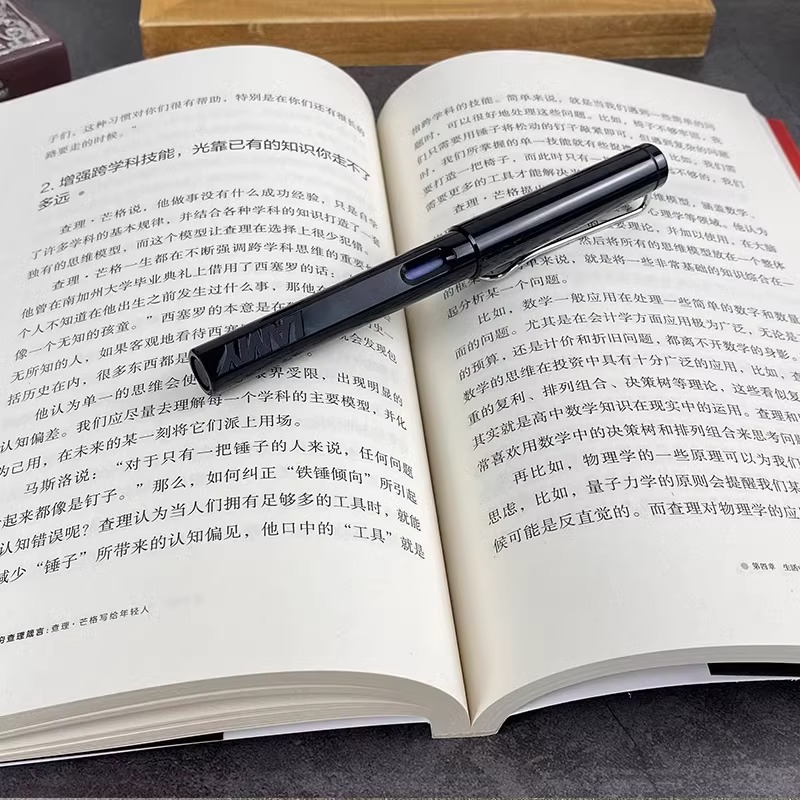 子们，这种习惯对你们很有帮助，特别是在你们还有很长的
路要走的时候。”
2. 增强跨学科技能，光靠已有的知识你走不了
多远
查理·芒格说，他做事没有什么成功经验，只是自学
了许多学科的基本规律，并结合各种学科的知识打造了一套
独有的思维模型，而这个模型让查理在选择上很少犯错。
查理·芒格一生都在不断强调跨学科思维的重要
他曾在南加州大学毕业典礼上借用了西塞罗的话：
个人不知道在他出生之前发生过什么事，那他在
像一个无知的孩童。”西塞罗的本意是在
无所知的人，如果客观地看待西塞 会发现包
括历史在内，很多东西都是
他认为单一的思维会使 眼界受限，出现明显的
认知偏差。我们应尽量去理解每一个学科的主要模型，并化
为己用，在未来的某一刻将它们派上用场。
马斯洛说：“对于只有一把锤子的人来说，任何问题
起来都像是钉子。”那么，如何纠正“铁锤倾向”所引起
认知错误呢？查理认为当人们拥有足够多的工具时，就能
减少“锤子”所带来的认知偏见，他口中的“工具”就是
查理箴言：查理·芒格写给年轻人
LAMY
指跨学科的技能。简单来说，就是当我们遇到一些简单的问
题时，可以很好地处理这些问题。比如，椅子不够牢固，我
们只需要用锤子将松动的钉子敲紧即可，但遇到复杂的问题
时，我们所掌握的单一技能就有些捉 比如，我们需
要打造一把椅子，而此时只有一 不够的，我们
需要更多的工具才能解决
查理·芒格提出 维模型，涵盖数学、
心理学等领域。他认为
要理论，并加以使用，在大脑
然后将所有的思维模型放在一个整体
的框 单来说，就是将一些非常基础的知识综合在一
起分析某一个问题。
比如，数学一般应用在处理一些简单的数字和数量
而的问题。尤其是在会计学方面应用极为广泛，无论是
的预算、还是计价和折旧问题，都离不开数学的身影。
数学的思维在投资中具有十分广泛的应用，比如，查
重的复利、排列组合、决策树等理论，这些看似复
其实就是高中数学知识在现实中的运用。查理和
常喜欢用数学中的决策树和排列组合来思考问
再比如，物理学的一些原理可以为我们
思虑，比如，量子力学的原则会提醒我们某
候可能是反直觉的。而查理对物理学的应
第四章 生活